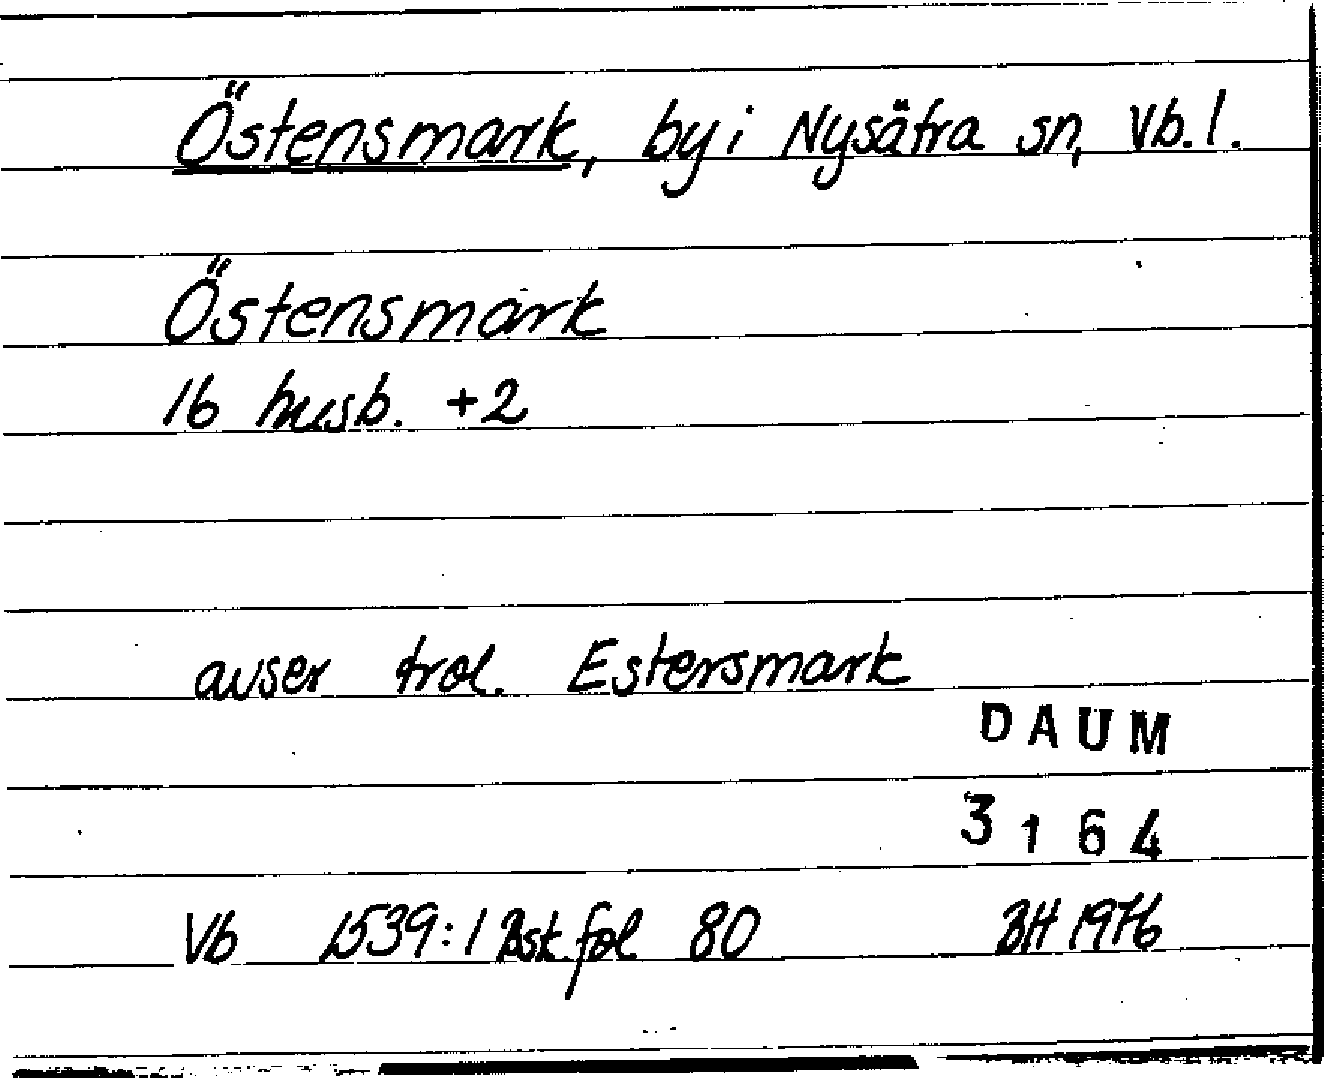 Östensmark, by i Nysätra sn, Vb. l.
Östensmark
16 husb. +2
avser trol. Estersmark
DAUM
3164
Vb 1539:1 Bsk fol 80 BH 1976